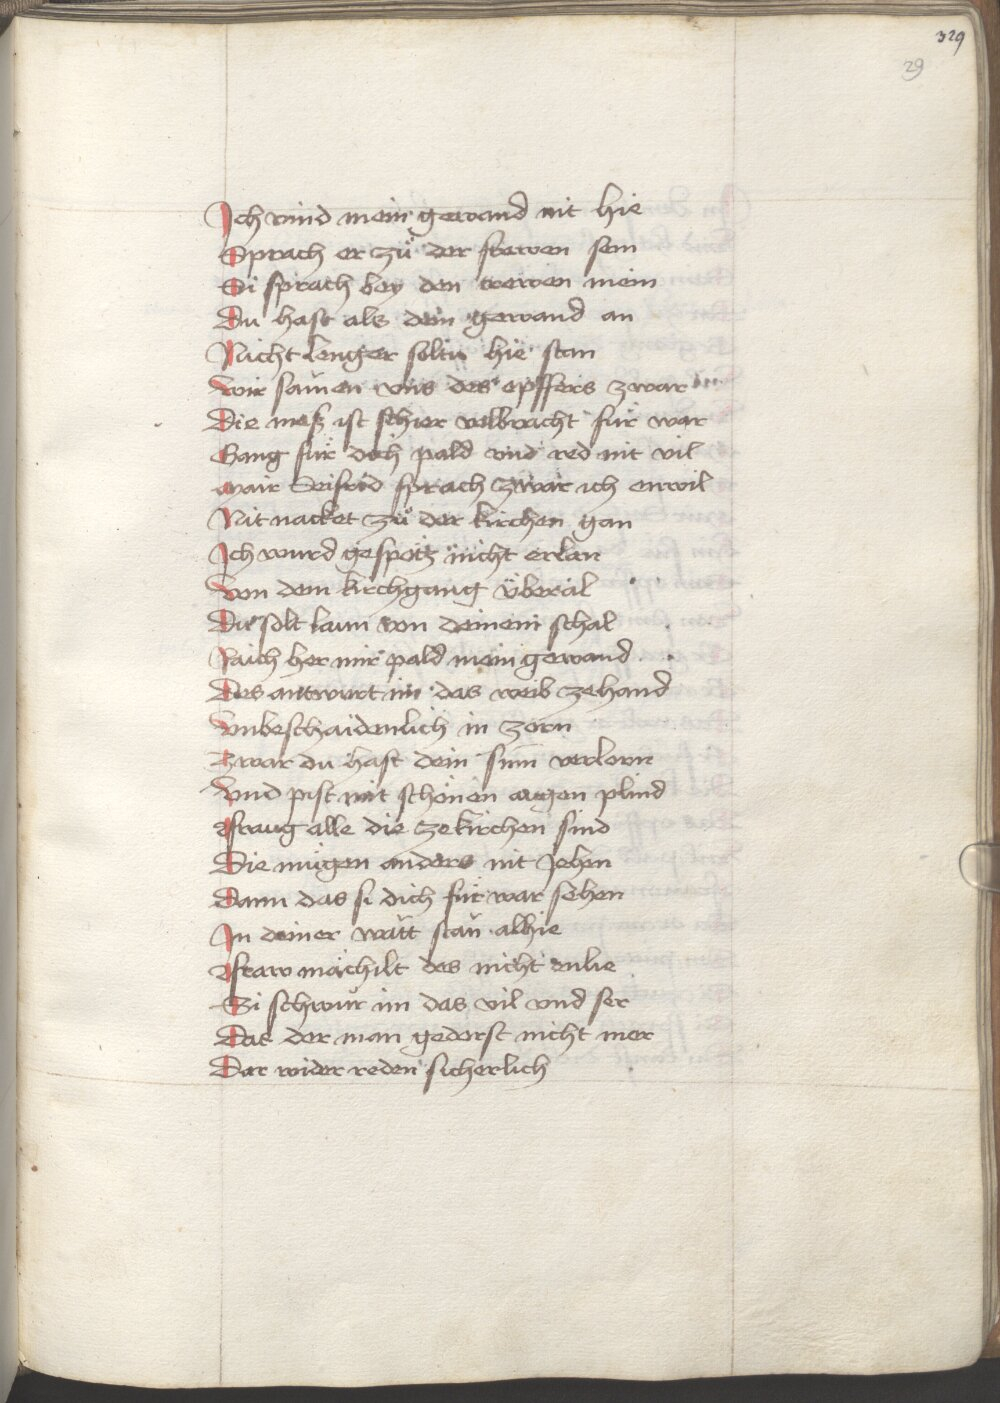 329
29
Ich vind mein gewand nit hie
Sprach er zů der frewen sein
Si sprach bey den trewen mein
Du hast als dein gewand an
Nicht lenger soltu hie stan
Wir saůmen vns des opffers zwar
Die mess ist schier volbracht für war
Gang für dich pald vnd red nit vil
Mair Seifrid sprach zwar ich enwil
Nit nacket zů der kirchen gan
Ich wurd gespötz nicht erlan
Von dem kirchgang überal
Du solt laun von deinem schal
Raich her mir pald mein gewand
Des antwurt im das weib zehand
Vnbeschaidenlich in zorn
Zwar du hast dein sinn verlorn
Vnd pist mit schönen augen plind
Fraug alle die zekirchen sind
Die mügen anders nit Jehen
Dann das si dich für war sehen
In deiner wätt stan alhie
Fraw mächilt des nicht enlie
Si schwůr im das vil vnd ser
Das der man gedorst nicht mer
Dar wider reden sicherlich